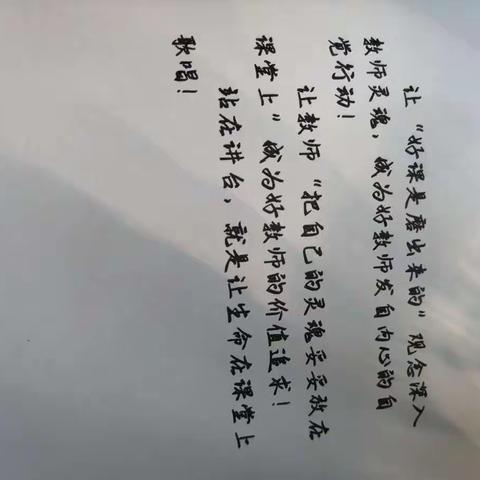 让“好课是磨出来的”观念深入
教师灵魂，成为好教师发自内心的自
觉行动！
让教师“把自己的灵魂妥妥放在
课堂上”成为好教师的价值追求！
站在讲台，就是让生命在课堂上
歌唱！